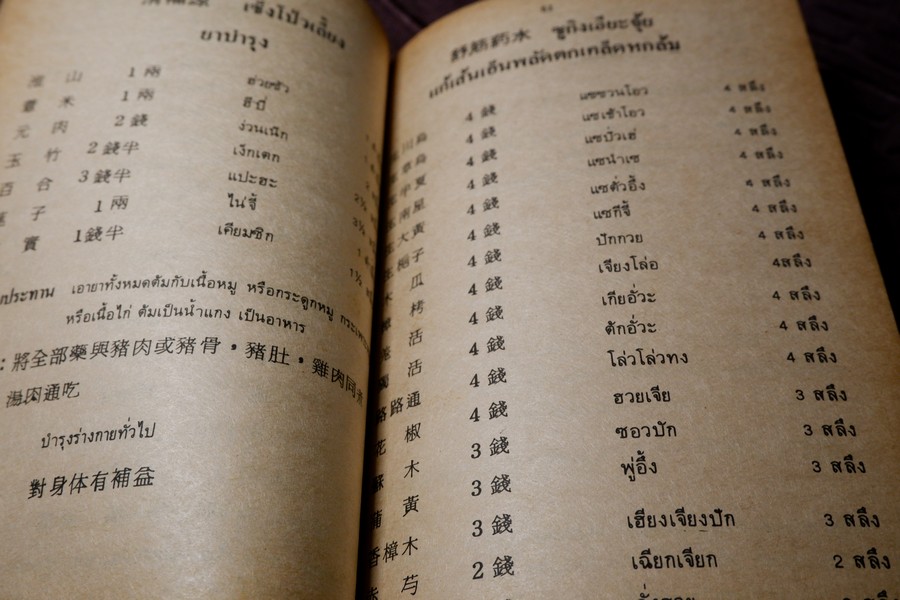 清補涼 เช็งโปวเลี้ยง
ยาบำรุง
淮山 1 兩 ฮ่วยซัว
薏米 1 兩 อีบี่
元肉 2 錢 ง่วนเน็ก
玉竹 2 錢半 เง็กเตก
百合 3 錢半 แปะฮะ
蓮子 1 兩 ไน่จี้
實 1錢半 เคียมซิก
เอายาทั้งหมดต้มกับเนื้อหมู หรือกระดูกหมู
หรือเนื้อไก่ ต้มเป็นน้ำแกง เป็นอาหาร
將全部藥與豬肉或豬骨，豬肚，雞肉同煮
湯肉通吃
บำรุงร่างกายทั่วไป
對身体有補益
舒筋药水 ซูกิงเอียะจุ้ย
แก้เส้นเอ็นพลัดตกเกล็ดหกล้ม
川烏 4 錢 แซชวนโอว 4 สลึง
草烏 4 錢 แซเช้าโอว 4 สลึง
半夏 4 錢 แซปั่วเฮ่ 4 สลึง
南星 4 錢 แซนำเซ 4 สลึง
大黃 4 錢 แซตั่วอึ้ง 4 สลึง
梔子 4 錢 แซกีจี้ 4 สลึง
木瓜 4 錢 ปักกวย 4 สลึง
樟栲 4 錢 เจียงโล่อ 4สลึง
羌活 4 錢 เกียอั๊วะ 4 สลึง
獨活 4 錢 ตักอั๊วะ 4 สลึง
路路通 4 錢 โล่วโล่วทง 4 สลึง
花椒 4 錢 ฮวยเจีย 3 สลึง
蘇木 3 錢 ซอวปัก 3 สลึง
蒲黃 3 錢 พู่อึ้ง 3 สลึง
香樟木 3 錢 เฮียงเจียงปัก 3 สลึง
芍 2 錢 เฉียกเจียก 2 สลึง